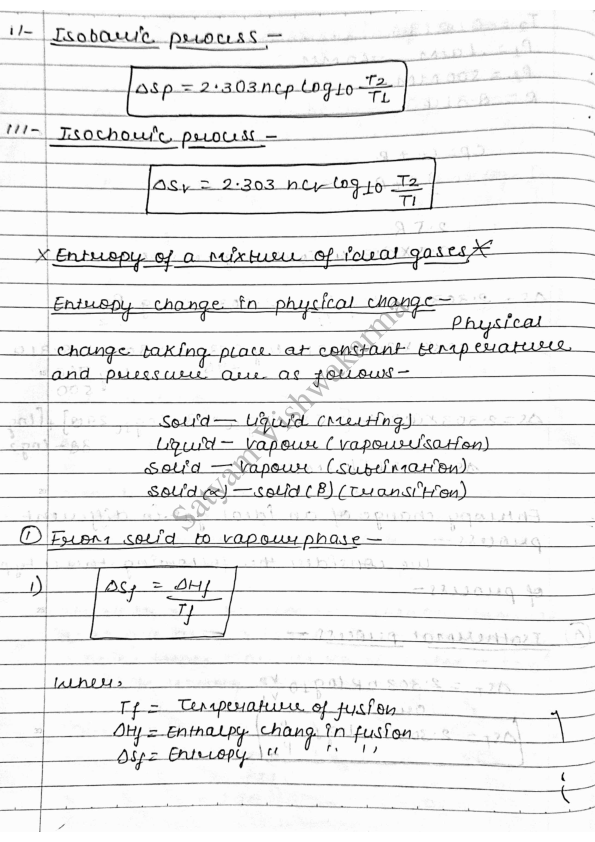 ii/- Isobaric process -
ΔSp = 2.303 ncp log10 T2/T1
iii- Isochoric process -
ΔSv = 2.303 ncv log10 T2/T1
× Entropy of a mixture of ideal gases ×
Entropy change in physical change - Physical
change taking place at constant temperature
and pressure are as follows -
solid — liquid (melting)
liquid — vapour (vapourisation)
solid — vapour (sublimation)
solid (α) — solid (β) (transition)
① From solid to vapour phase -
1) ΔSf = ΔHf/Tf
where,
Tf = Temperature of fusion
ΔHf = Enthalpy chang in fusion
ΔSf = Entropy " " "
Satyam Vishwakarma